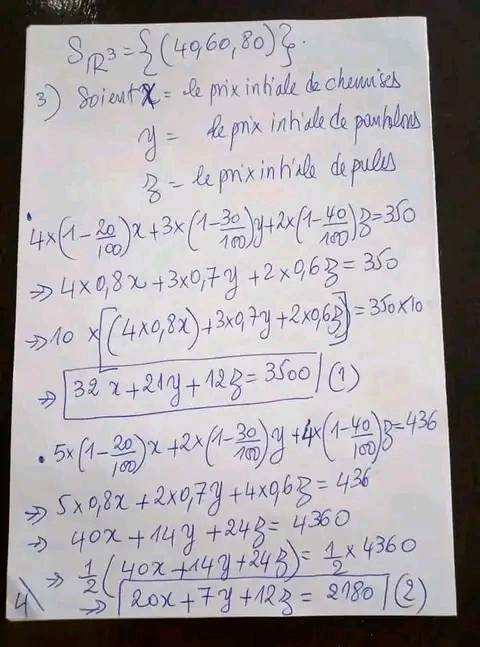 S_ℝ³ = {(40,60,80)}.
3) Soient x = le prix intiale de chemises
y = le prix intiale de pantalons
z = le prix intiale de pules
• 4×(1-20/100)x+3×(1-30/100)y+2×(1-40/100)z=350
⇒ 4×0,8x+3×0,7y+2×0,6z=350
⇒ 10×[(4×0,8x)+3×0,7y+2×0,6z]=350×10
⇒ 32x+21y+12z=3500 (1)
• 5×(1-20/100)x+2×(1-30/100)y+4×(1-40/100)z=436
⇒ 5×0,8x+2×0,7y+4×0,6z=436
⇒ 40x+14y+24z=4360
⇒ 1/2(40x+14y+24z)=1/2×4360
4\ ⇒ 20x+7y+12z=2180 (2)